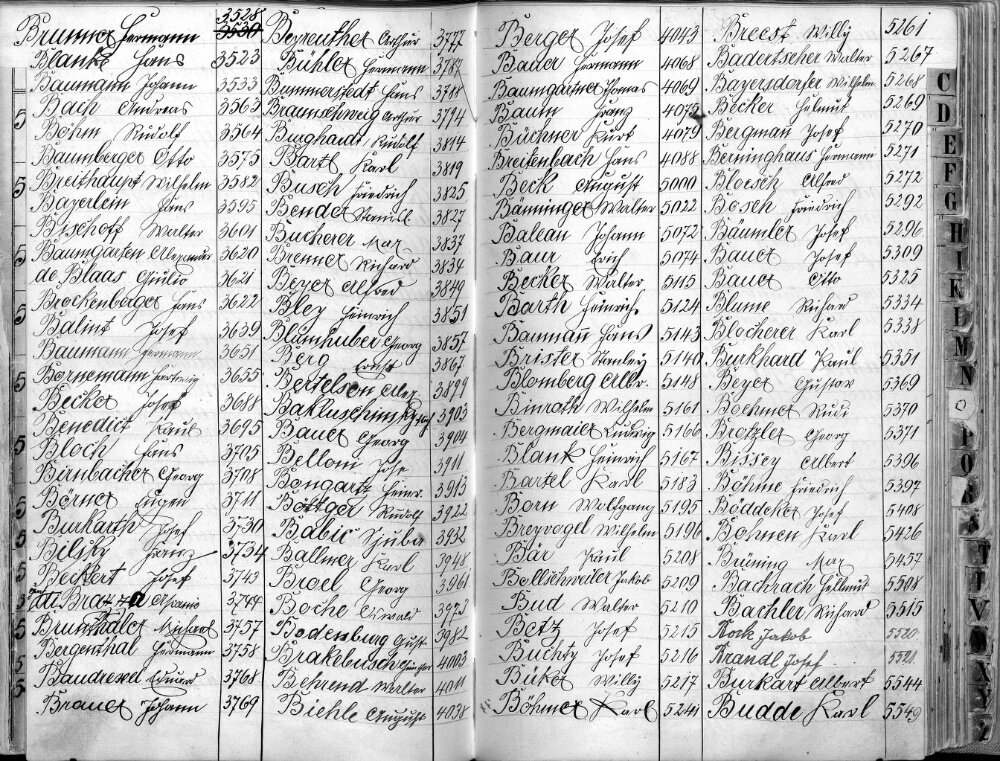 Brunner Hermann 3528 3530
Blanke Hans 3523
Baumann Johann 3533
Bach Andreas 3563
Böhm Rudolf 3564
Baumberger Otto 3575
Breithaupt Wilhelm 3582
Bayerlein Hans 3595
Bischoff Walter 3601
Baumgarten Alexander 3620
de Blaas Giulio 3621
Brockenberger Hans 3622
Balint Josef 3639
Baumann Hermann 3651
Bornemann Hartwig 3655
Becker Josef 3688
Benedict Paul 3695
Bloch Hans 3705
Birnbacher Georg 3708
Börner Eugen 3711
Burkarth Josef 3730
Bilsky Franz 3734
Beckert Josef 3743
di Brazza Ascanio 3744
Brunthaler Michael 3757
Bergenthal Hermann 3758
Baudrexel Eduard 3768
Brauer Johann 3769
Beyreuther Arthur 3777
Bühler Hermann 3787
Bummerstedt Hans 3788
Braunschweig Arthur 3794
Burghardt Rudolf 3814
Bartl Karl 3819
Busch Friedrich 3825
Bender Samuel 3827
Bucherer Max 3837
Brenner Richard 3834
Beyer Alfred 3849
Bley Heinrich 3851
Blumhuber Georg 3857
Berg Ernst 3867
Bertelson Alex 3899
3903
Bauer Georg 3904
Bellom Jose 3911
Bongartz Heinr. 3913
Böttger Rudolf 3922
Babic Ljuba 3932
Ballmer Karl 3948
Broel Georg 3968
Boche Oswald 3973
Bodenburg Gust 3982
Brakebusch Günther 4003
Behrend Walter 4011
Biehle August 4038
Berger Josef 4043
Bauer Hermann 4068
Baumgartner Thomas 4069
Baum Franz 4075
Büchner Kurt 4079
Breitenbach Hans 4088
Beck August 5000
Bänninger Walter 5022
Balean Johann 5072
Baur Erich 5074
Becker Walter 5115
Barth Heinrich 5124
Baumann Hans 5143
Brister Stanley 5140
Blomberg Albr. 5148
Binroth Wilhelm 5161
Bergmaier Ludwig 5166
Blank Heinrich 5167
Bartel Karl 5183
Born Wolfgang 5195
Breyvogel Wilhelm 5196
Bär Paul 5208
Bollschweiler Jakob 5209
Bud Walter 5210
Betz Josef 5215
Buchty Josef 5216
Büker Willy 5217
Böhmer Karl 5241
Breest Willy 5261
Badertscher Walter 5267
Bayersdorfer Wilhelm 5268
Becker Helmut 5269
Bergmann Josef 5270
Berninghaus Hermann 5271
Bloesch Alfred 5272
Bosch Friedrich 5292
Bäumler Josef 5296
Bauer Josef 5309
Bauer Otto 5325
Blume Richard 5334
Blocherer Karl 5338
Burkhard Paul 5351
Beyer Gustav 5369
Boehmer Rudi 5370
Brotzler Georg 5371
Bissey Albert 5396
Böhme Friedrich 5397
Böddeker Josef 5408
Bohnen Karl 5426
Brüning Max 5457
Bachrach Hellmud 5508
Bachler Richard 5515
Bock Jakob 5520
Brandl Josef 5521
Burkart Albert 5544
Budde Karl 5549
C
D
E
F
G
H
I
K
L
M
N
O
P
Q
R
S
T
U
V
W
X Y
Z